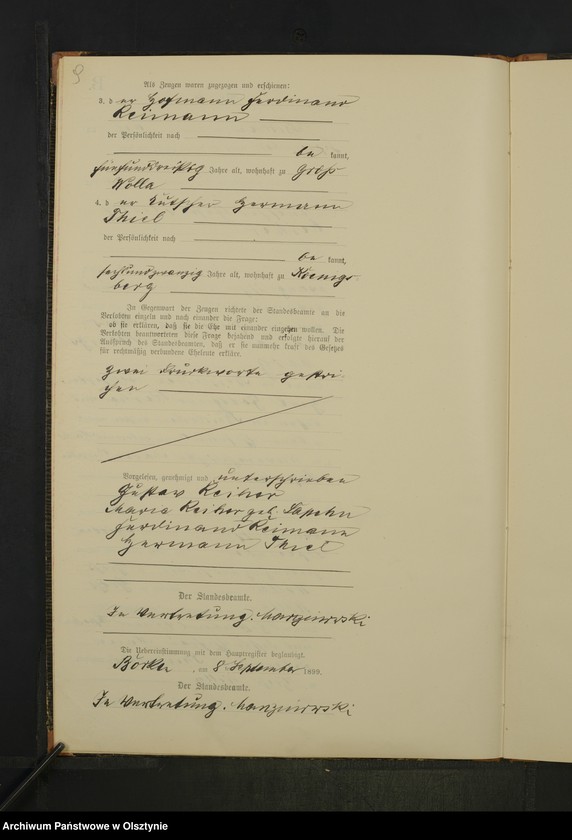 9
Als Zeugen waren zugezogen und erschienen:
3. der Hofmann Ferdinand
Reimann
der Persönlichkeit nach
bekannt,
fünfunddreißig Jahre alt, wohnhaft zu Groß
Wolla
4. der Kutscher Hermann
Thiel
der Persönlichkeit nach
bekannt,
sechsundzwanzig Jahre alt, wohnhaft zu Koenigs-
berg
In Gegenwart der Zeugen richtete der Standesbeamte an die
Verlobten einzeln und nach einander die Frage:
ob sie erklären, daß sie die Ehe mit einander eingehen wollen. Die
Verlobten beantworteten diese Frage bejahend und erfolgte hierauf der
Ausspruch des Standesbeamten, daß er sie nunmehr kraft des Gesetzes
für rechtmäßig verbundene Eheleute erkläre.
Zwei Druckworte gestri-
chen
Vorgelesen, genehmigt und unterschrieben
Gustav
Maria geb.
Ferdinand Reimann
Hermann Thiel
Der Standesbeamte.
In Vertretung.
Die Uebereinstimmung mit dem Hauptregister beglaubigt.
am 8 September 1899.
Der Standesbeamte.
In Vertretung.
Archiwum Państwowe w Olsztynie